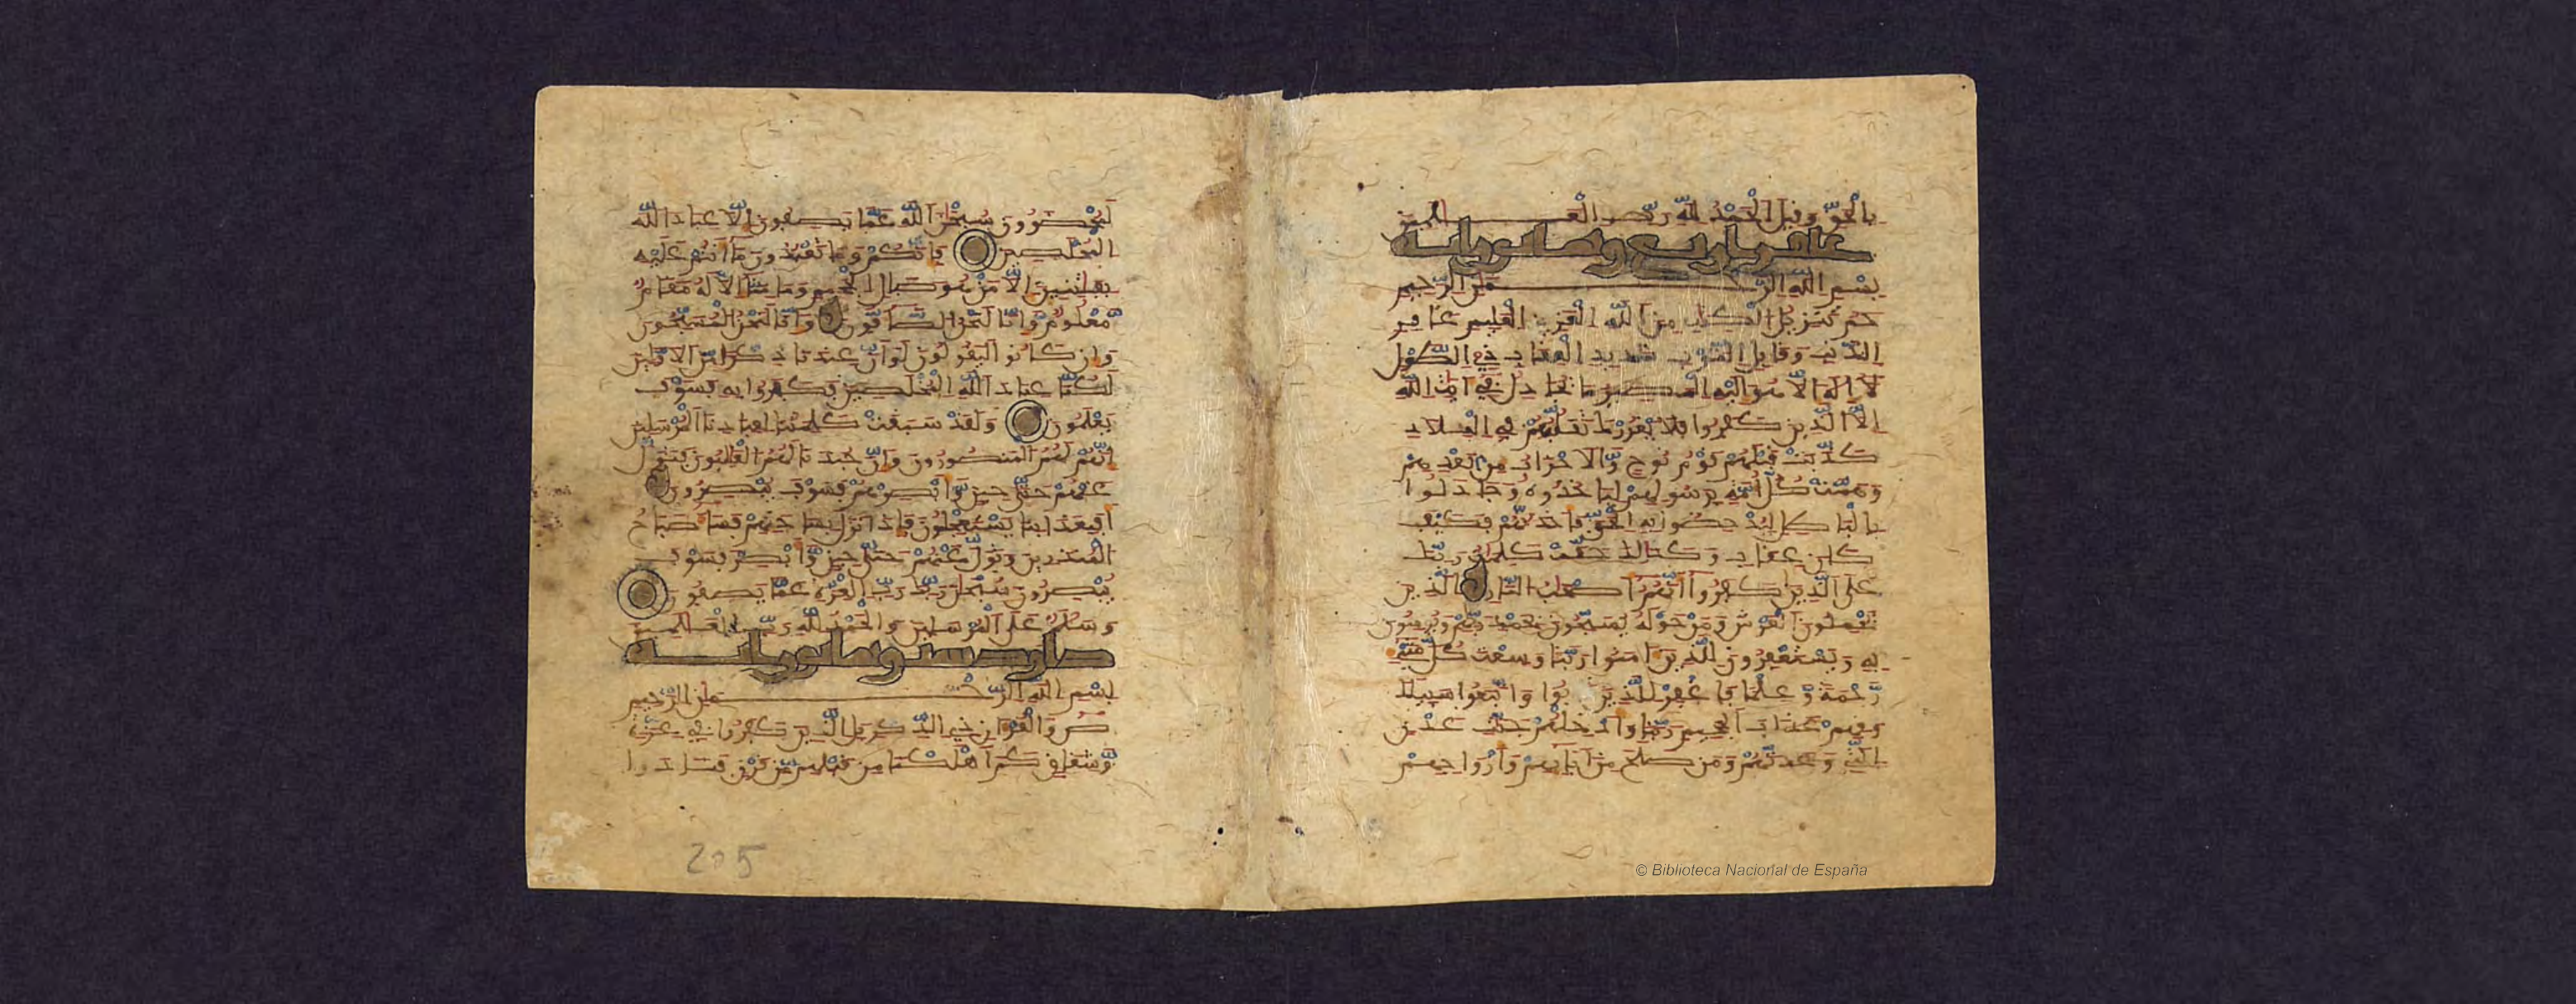 بالحق وقيل الحمد لله رب العلمين
غافر اربع وثمانون اية
بسم الله الرحمن الرحيم
حم تنزيل الكتب من الله العزيز العليم غافر
الذنب وقابل التوب شديد العقاب ذي الطول
لا اله الا هو اليه المصير ما يجادل في ايت الله
الا الذين كفروا فلا يغررك تقلبهم في البلاد
كذبت قبلهم قوم نوح والاحزاب من بعدهم
وهمت كل امة برسولهم لياخذوه وجادلوا
بالباطل ليدحضوا به الحق فاخذتهم فكيف
كان عقاب وكذلك حقت كلمات ربك
على الذين كفروا انهم اصحب النار الذين
يحملون العرش ومن حوله يسبحون بحمد ربهم ويومنون
به ويستغفرون للذين امنوا ربنا وسعت كل شيء
رحمة وعلما فاغفر للذين تابوا واتبعوا سبيلك
وقهم عذاب الجحيم ربنا وادخلهم جنت عدن
التي وعدتهم ومن صلح من ابايهم وازواجهم
لمحضرون سبحن الله عما يصفون الا عباد الله
المخلصين فانكم وما تعبدون ما انتم عليه
بفتنين الا من هو صال الجحيم وما منا الا له مقام
معلوم وانا لنحن الصافون وانا لنحن المسبحون
وان كانوا ليقولون لو ان عندنا ذكرا من الاولين
لكنا عباد الله المخلصين فكفروا به فسوف
يعلمون ولقد سبقت كلمتنا لعبادنا المرسلين
انهم لهم المنصورون وان جندنا لهم الغلبون فتول
عنهم حتى حين وابصرهم فسوف يبصرون
افبعذابنا يستعجلون فاذا نزل بساحتهم فسا صباح
المنذرين وتول عنهم حتى حين وابصر فسوف
يبصرون سبحن ربك رب العزة عما يصفون
وسلم على المرسلين والحمد لله رب العلمين
داود ست وثمانون اية
بسم الله الرحمن الرحيم
ص والقران ذي الذكر بل الذين كفروا في عزة
وشقاق كم اهلكنا من قبلهم من قرن فنادوا
205
© Biblioteca Nacional de España